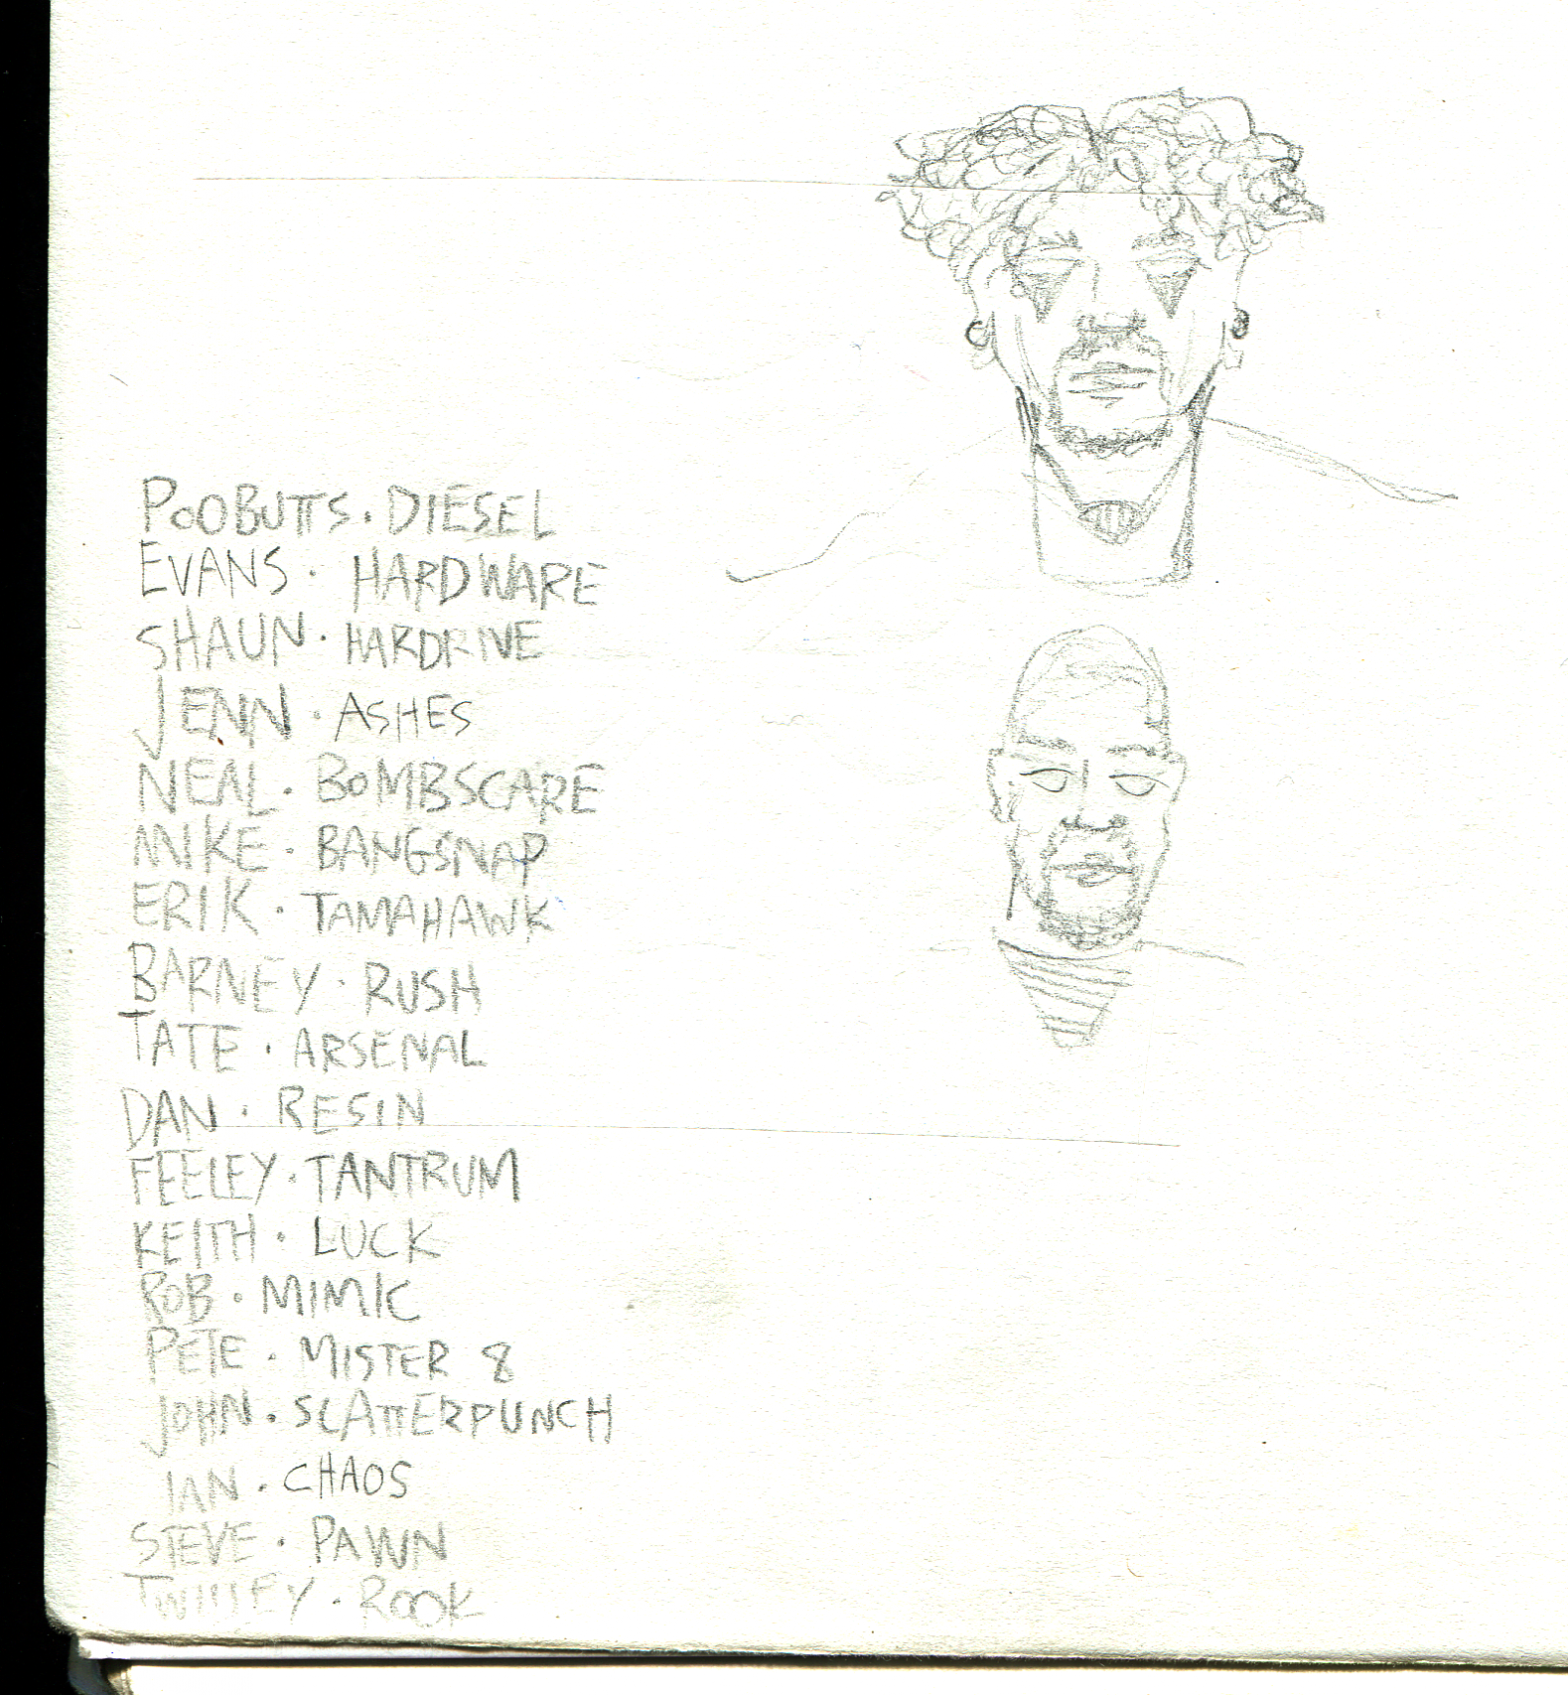 POOBUTTS · DIESEL
EVANS · HARDWARE
SHAUN · HARDRIVE
JENN · ASHES
NEAL · BOMBSCARE
MIKE · BANGSNAP
ERIK · TAMAHAWK
BARNEY · RUSH
TATE · ARSENAL
DAN · RESIN
FEELEY · TANTRUM
KEITH · LUCK
ROB · MIMIC
PETE · MISTER 8
JOHN · SCATTERPUNCH
IAN · CHAOS
STEVE · PAWN
· ROOK